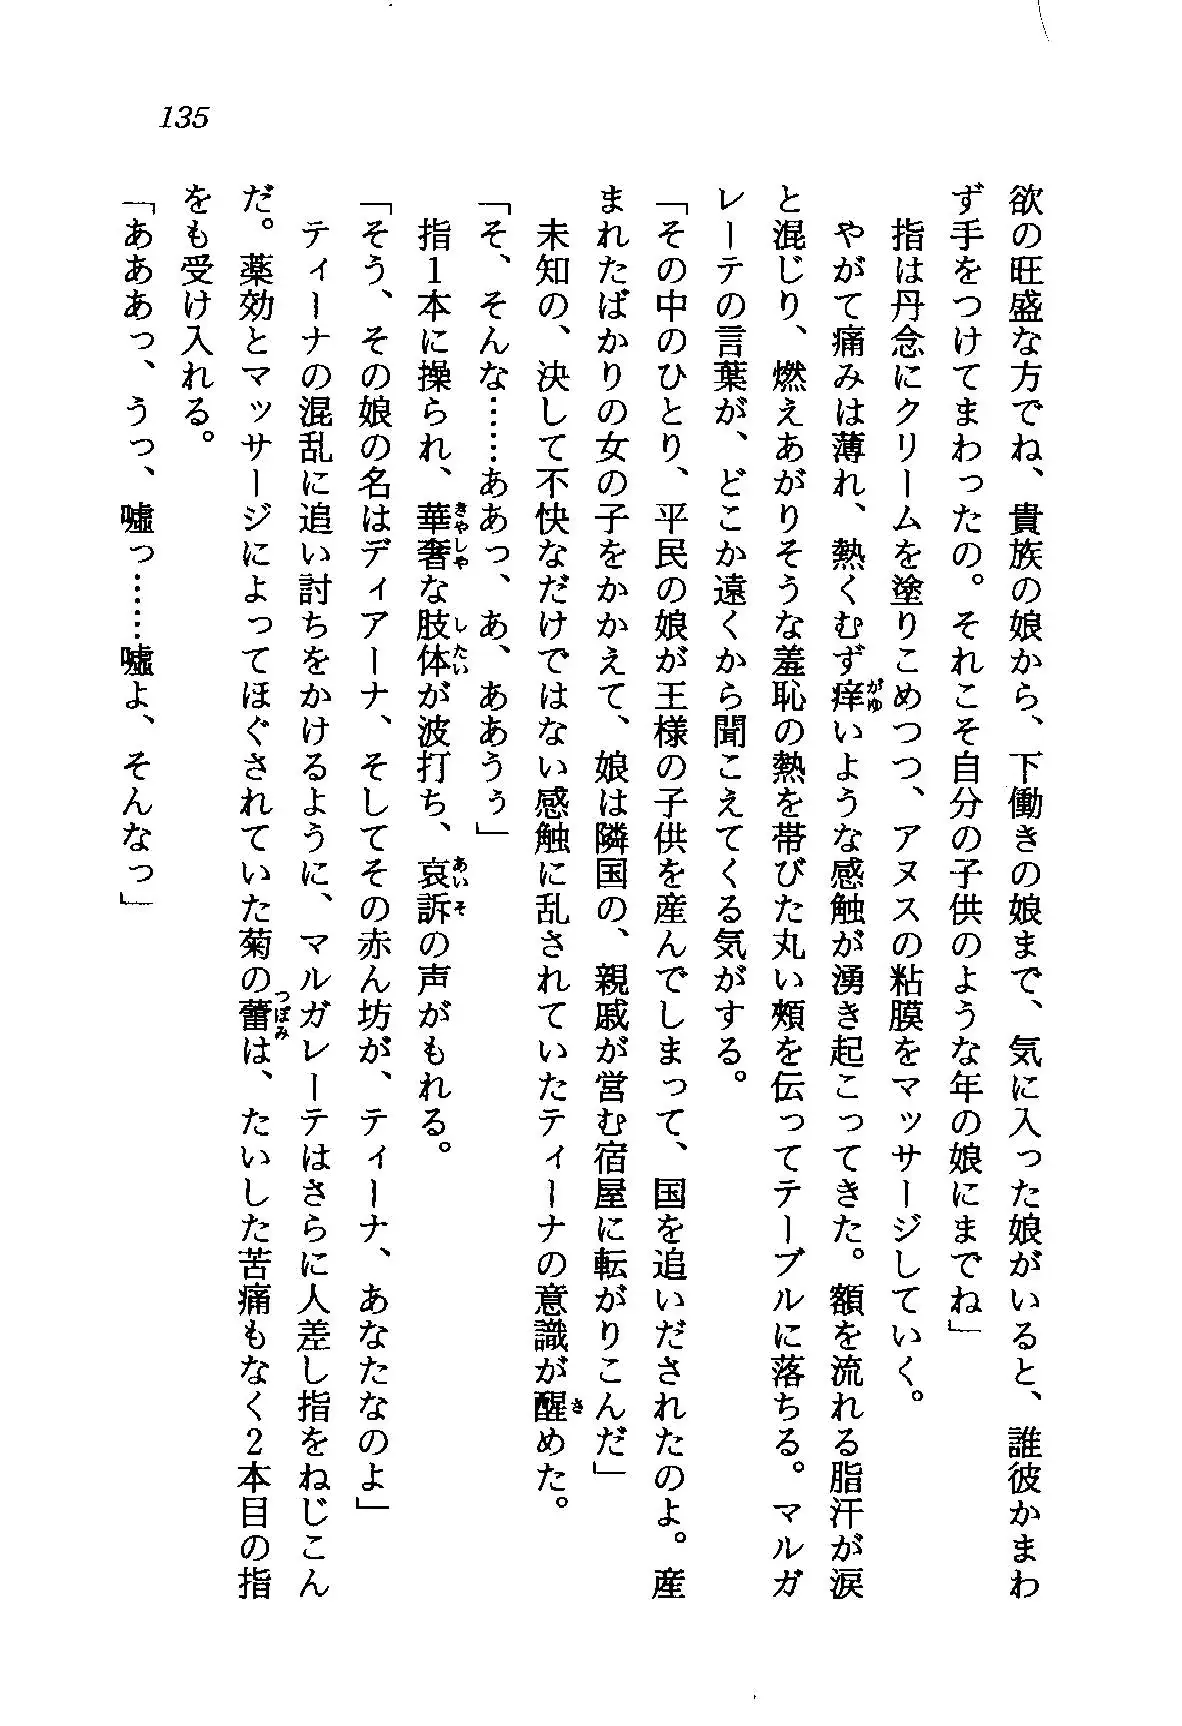 135
欲の旺盛な方でね、貴族の娘から、下働きの娘まで、気に入った娘がいると、誰彼かまわ
ず手をつけてまわったの。それこそ自分の子供のような年の娘にまでね」
指は丹念にクリームを塗りこめつつ、アヌスの粘膜をマッサージしていく。
やがて痛みは薄れ、熱くむず痒いような感触が湧き起こってきた。額を流れる脂汗が涙
と混じり、燃えあがりそうな羞恥の熱を帯びた丸い頬を伝ってテーブルに落ちる。マルガ
レーテの言葉が、どこか遠くから聞こえてくる気がする。
「その中のひとり、平民の娘が王様の子供を産んでしまって、国を追いだされたのよ。産
まれたばかりの女の子をかかえて、娘は隣国の、親戚が営む宿屋に転がりこんだ」
未知の、決して不快なだけではない感触に乱されていたティーナの意識が醒めた。
「そ、そんな……ああっ、あ、ああうぅ」
指1本に操られ、華奢な肢体が波打ち、哀訴の声がもれる。
「そう、その娘の名はディアーナ、そしてその赤ん坊が、ティーナ、あなたなのよ」
ティーナの混乱に追い討ちをかけるように、マルガレーテはさらに人差し指をねじこん
だ。薬効とマッサージによってほぐされていた菊の蕾は、たいした苦痛もなく2本目の指
をも受け入れる。
「あああっ、うっ、嘘っ……嘘よ、そんなっ」